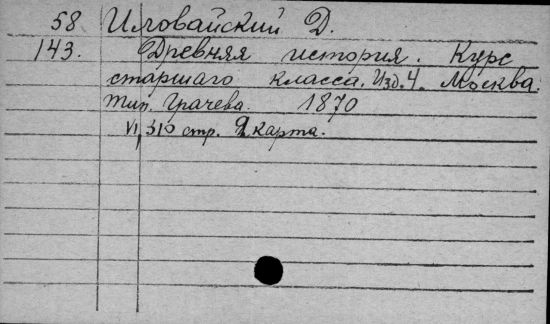 58 Иловайский Д.
143. Древняя история. Курс
старшаго класса. Изд. 4. Москва.
Тип. Грачева. 1870
VI, 310 стр. 9 карта.